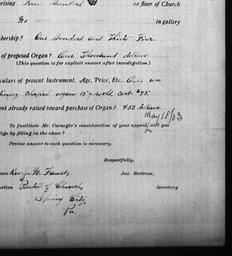 rising Four Hundred on floor of Church
No in gallery
bership? One Hundred and Thirty Five
of proposed Organ? One Thousand dollars
(This question is for explicit answer after investigation.)
culars of present Instrument, Age, Price, Etc. Only an
organ 15 yrs old, cost $45
nt already raised toward purchase of Organ? 450 dollars
May 18/03
To facilitate Mr. Carnegie's consideration of your appeal, will you
lige by filling in the above?
Precise answer to each question is necessary.
Respectfully,
Jas. Bertram,
Secretary
ation Pastor of Church,
City,
Pa.